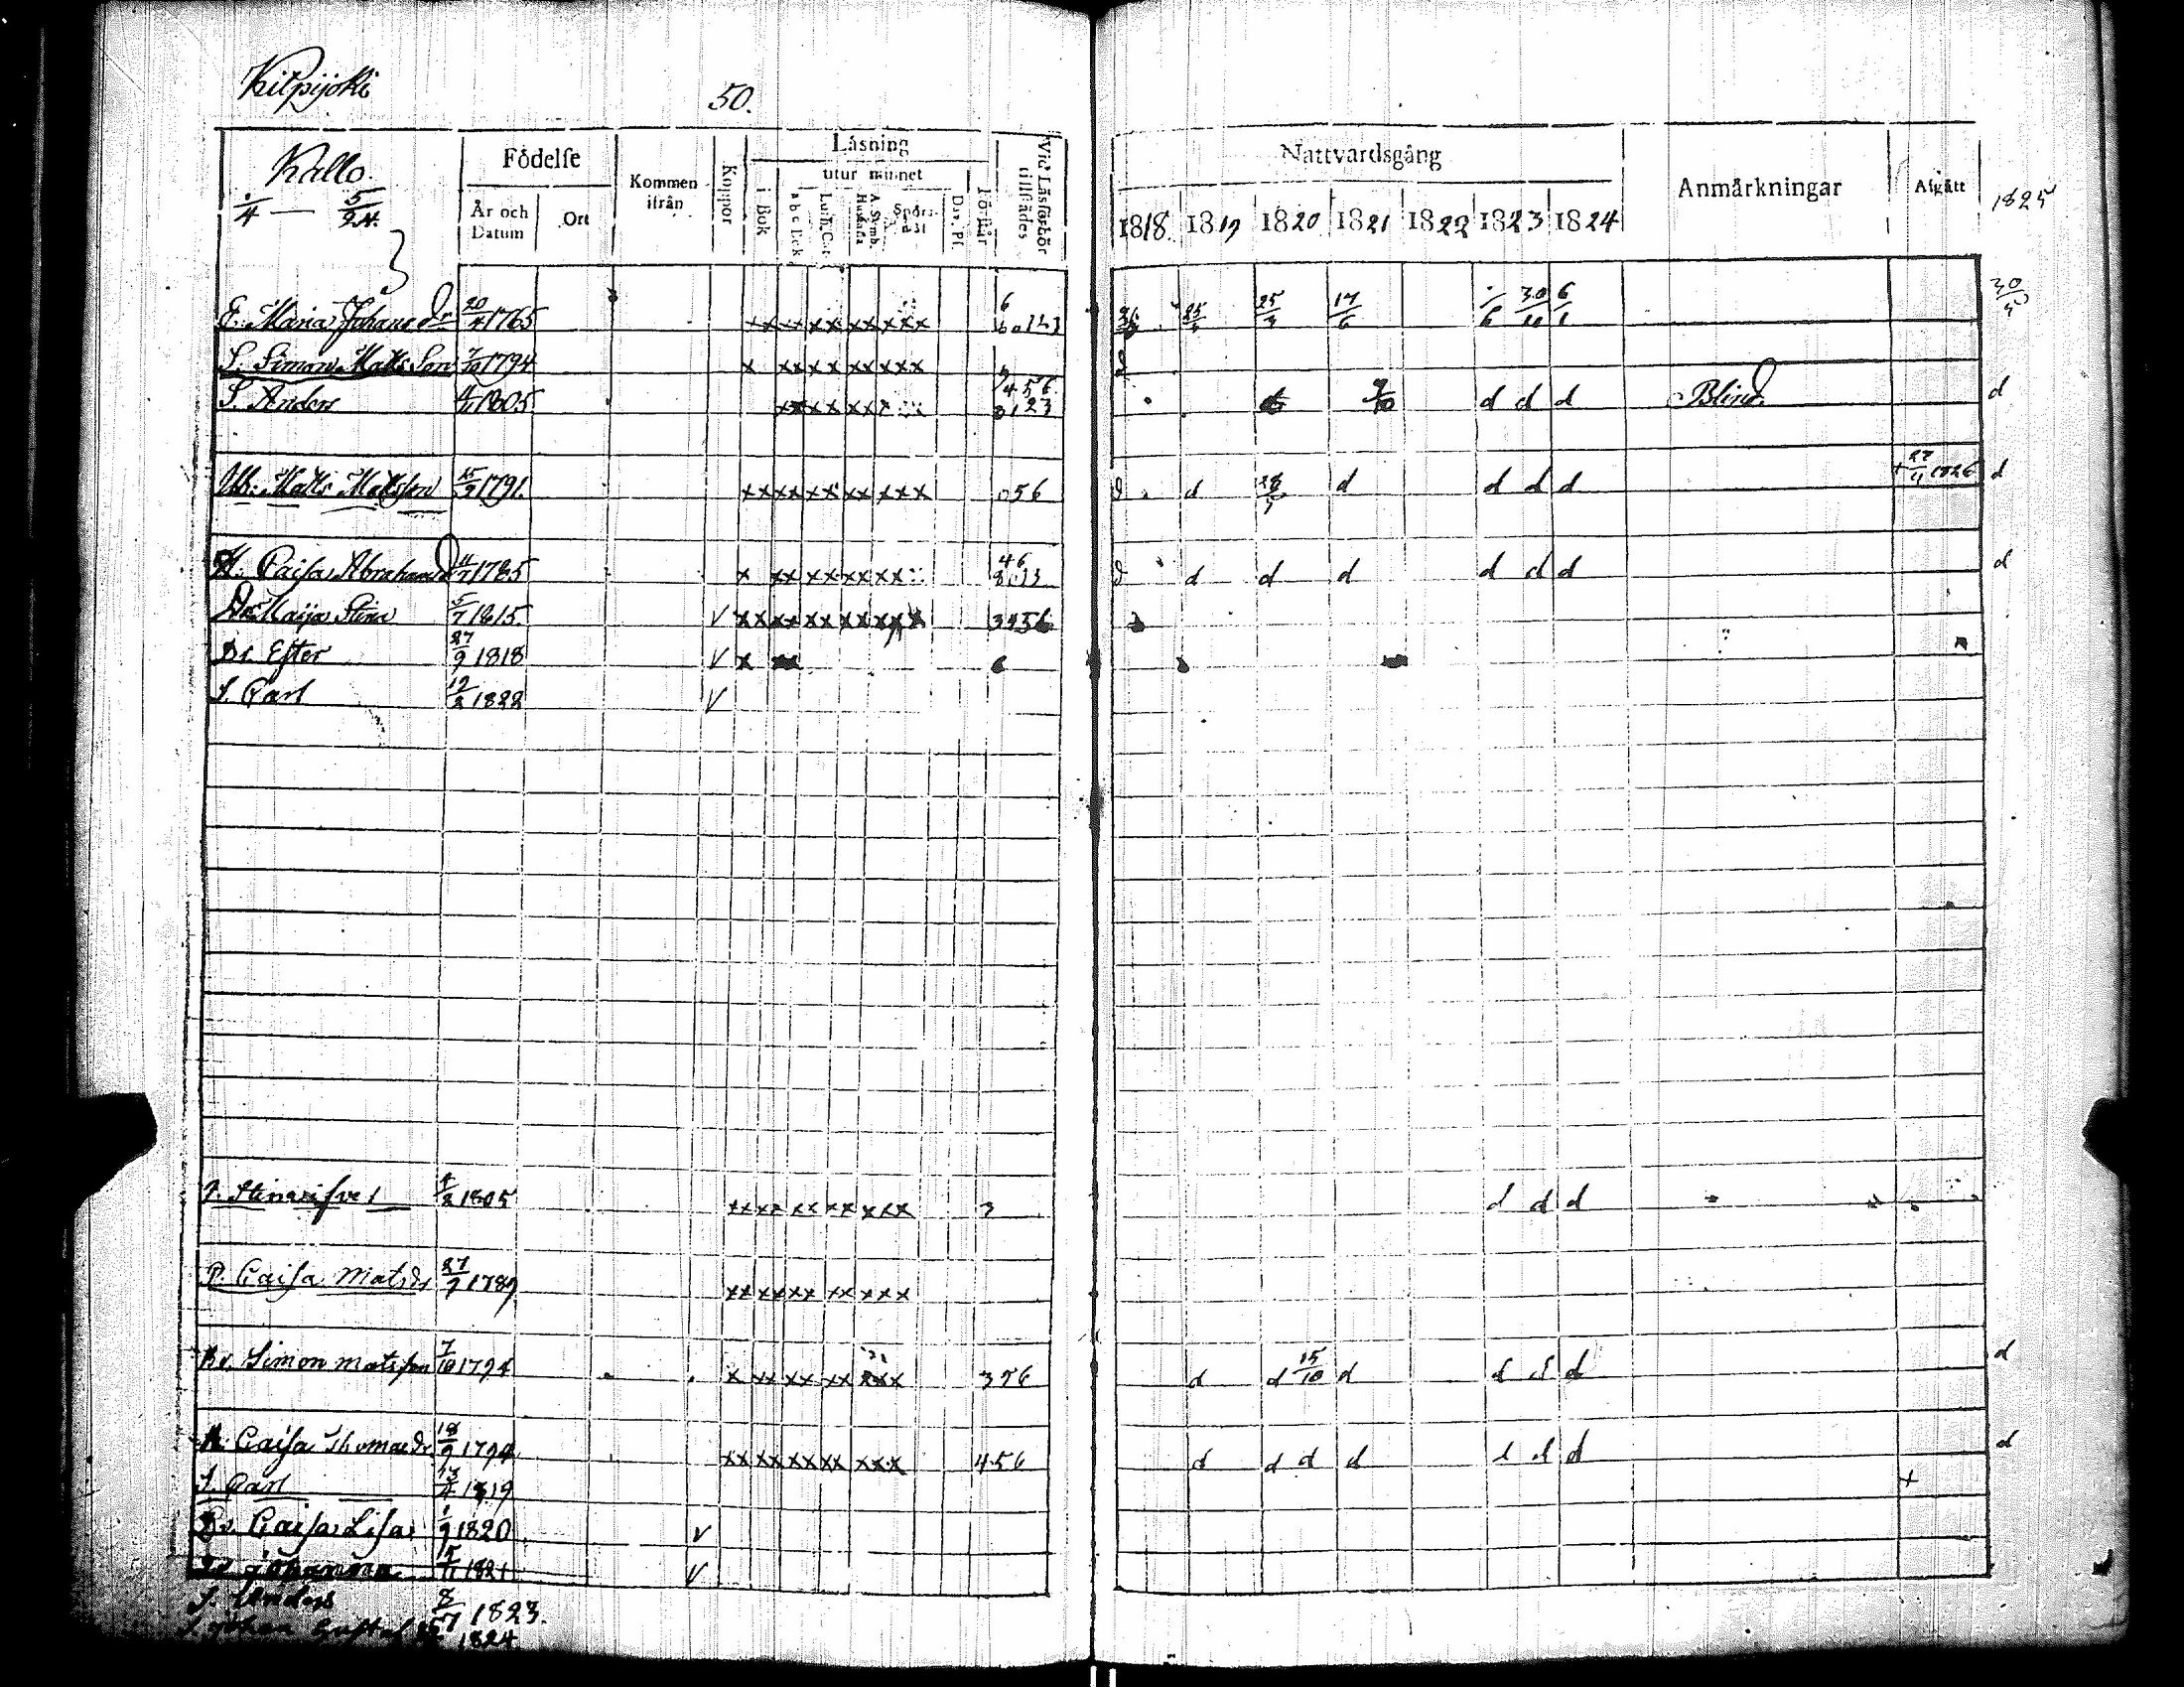 Kilpijoki
50.
Kallo.
1/4 — 5/24.
Födelse
År och Datum
Ort
Kommen ifrån
Koppor
Läsning
i Bok
utur minnet
a b c Bok
Luth. Cat.
A. Symb. Hustafla
Spörsmål
Dav. Ps.
Förstår
Vid Läsförhör tillstädes
Nattvardsgång
1818. 1819 1820 1821 1822 1823 1824
Anmärkningar
Afgått
1825
E. Maria Johans dr 20/4 1765 xx xx xx xx xxx 25/3 17/6 30/10 6/1 30/5
S. Simon Matts Son 7/10 1794 x xx xx xx xxx
S. Anders 1805 456 0123 9/10 d d d Blind d
Ub. Matts Matsson 15/9 1791. xx xx xx xx xxx 056 d d d d d 1826 d
H. Caisa Abrahamsd 1785 x xx xx xx xx 46 d d d d d d d
Dr. Maija Stina 5/7 1815. V xx xx xx xx xxx 3456
Dr. Ester 27/9 1818 V x 6
S. Carl 12/2 1822 V
1805 xx xx xx xx xxx 3 d d d
P. Caisa Matsdr 27/7 1789 xx xx xx xx xxx
Br. Simon Matsson 7/10 1794 x xx xx xx xxx 356 d d 15/10 d d d d d
H. Caisa Thomasdr 18/9 1794 xx xx xx xx xxx 456 d d d d d d d d
S. Carl 1819 +
Dr. Caisa Lisa 1/9 1820 V
Dr Johanna 1821 V
S. Anders 8/7 1823.
S. Johan Gustaf 1824